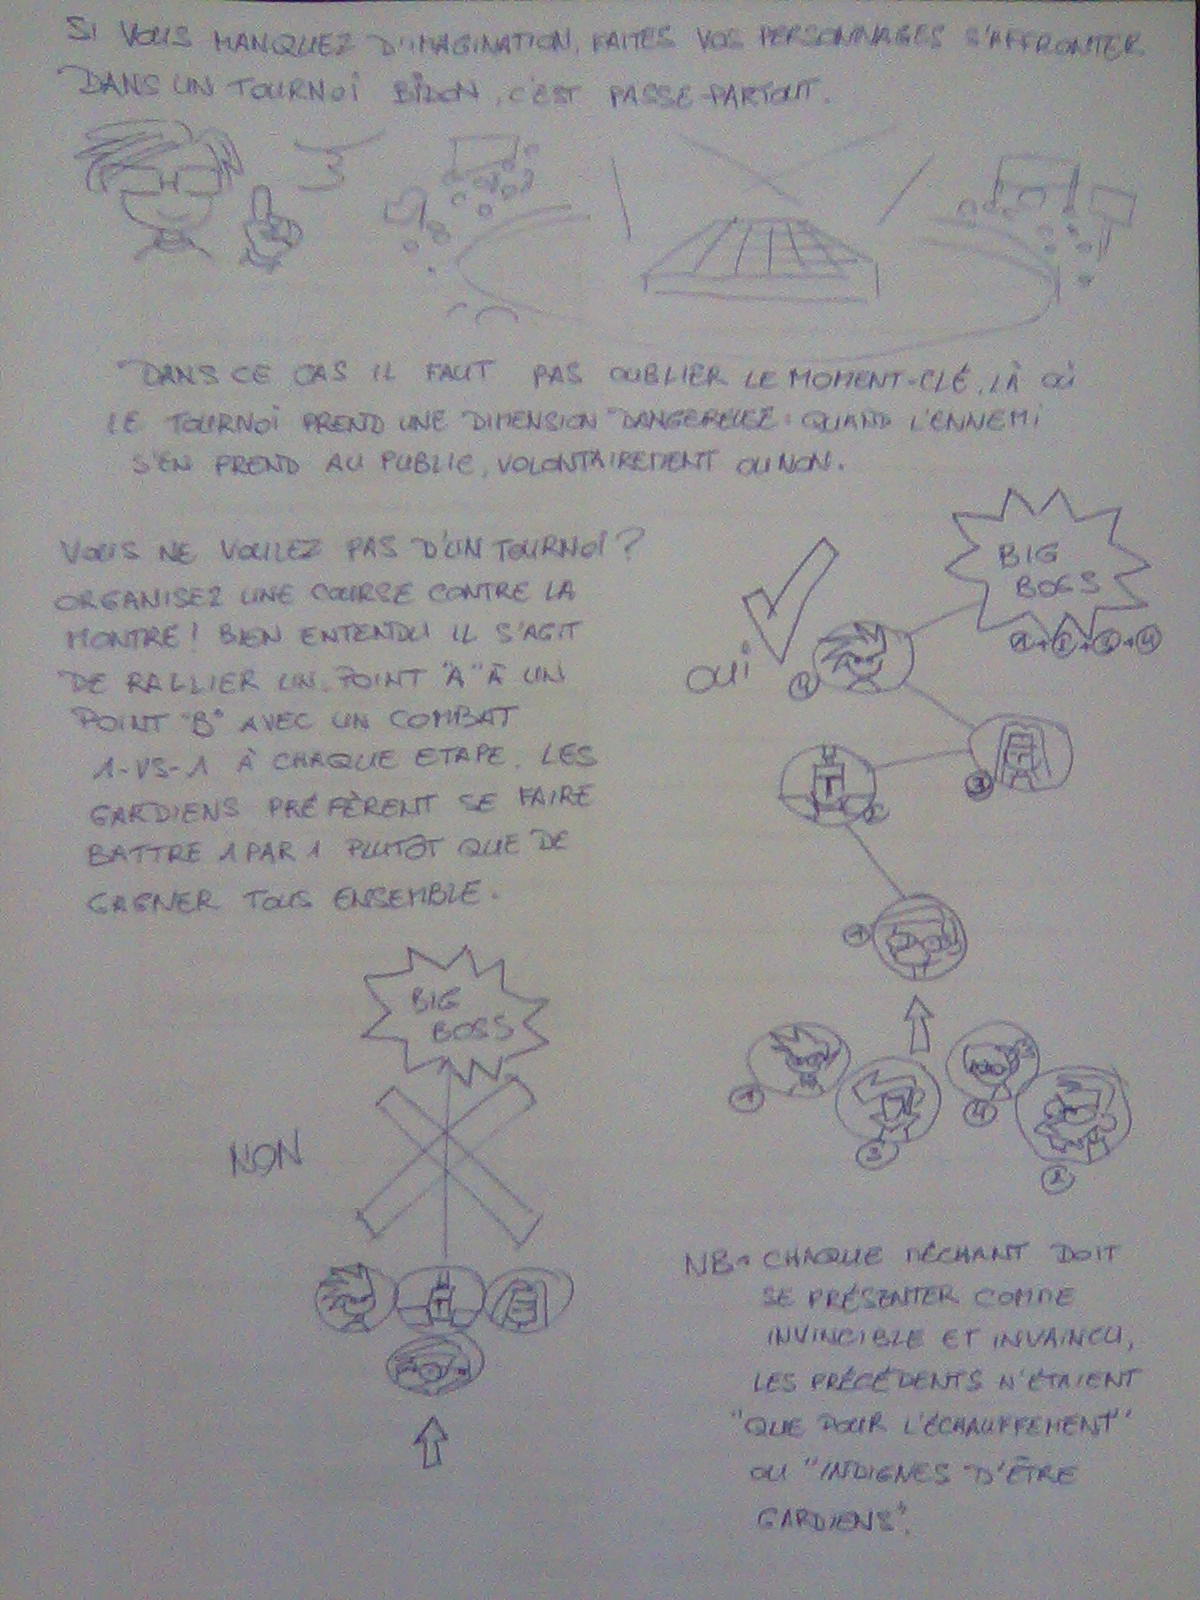 SI VOUS MANQUEZ D'IMAGINATION, FAITES VOS PERSONNAGES S'AFFRONTER
DANS UN TOURNOI BIDON, C'EST PASSE-PARTOUT.
DANS CE CAS IL FAUT PAS OUBLIER LE MOMENT-CLÉ, LÀ OÙ
LE TOURNOI PREND UNE DIMENSION "DANGEREUZE": QUAND L'ENNEMI
S'EN PREND AU PUBLIC, VOLONTAIREMENT OU NON.
VOUS NE VOULEZ PAS D'UN TOURNOI ?
ORGANISEZ UNE COURSE CONTRE LA
MONTRE ! BIEN ENTENDU IL S'AGIT
DE RALLIER UN POINT "A" À UN
POINT "B" AVEC UN COMBAT
1-VS-1 À CHAQUE ETAPE. LES
GARDIENS PRÉFÈRENT SE FAIRE
BATTRE 1 PAR 1 PLUTÔT QUE DE
GAGNER TOUS ENSEMBLE.
BIG
BOSS
1+2+3+4
OUI
4
3
T
2
1
1
3
4
2
BIG
BOSS
NON
T
NB: CHAQUE MÉCHANT DOIT
SE PRÉSENTER COMME
INVINCIBLE ET INVAINCU,
LES PRÉCÉDENTS N'ÉTAIENT
"QUE POUR L'ÉCHAUFFEMENT"
OU "INDIGNES D'ÊTRE
GARDIENS".